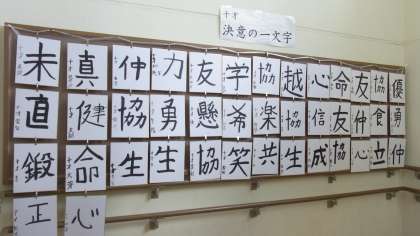 十才
決意の一文字
未 真 仲 力 友 学 協 越 心 命 友 協 優
直 健 協 勇 懸 希 楽 協 信 友 仲 食 勇
鍛 命 生 生 協 笑 共 生 成 協 心 立 仲
正 心